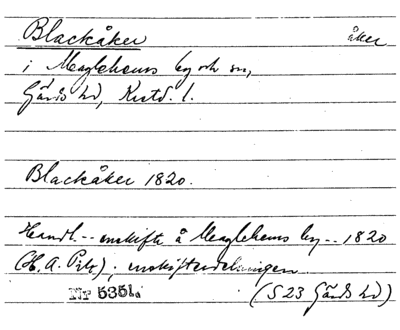 Blackåker åker
i Maglehems by och sn,
Gärds hd, Krstd. l.
Blackåker 1820.
Handl. -- enskifte å Maglehems by -- 1820
(H. A. Pilz); enskiftesdelningen
Nr 5351. (S 23 Gärds hd)